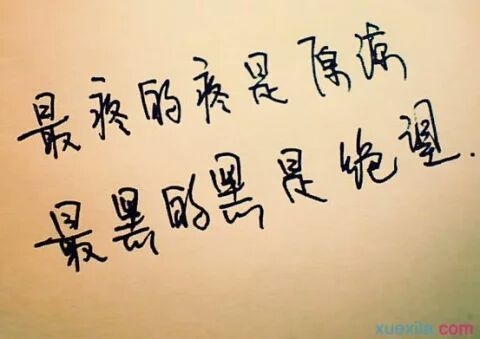 最疼的疼是原谅
最黑的黑是绝望.
xuexila.com